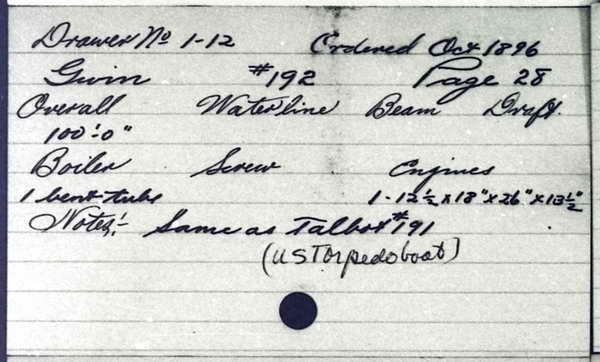 Drawer No 1-12 Ordered Oct 1896
Gwin #192 Page 28
Overall Waterline Beam Draft.
100'-0"
Boiler Screw Engines
1 bent-tube 1-12½ x 18" x 26" x 13½"
Notes:- Same as Talbot #191
(US Torpedoboat)